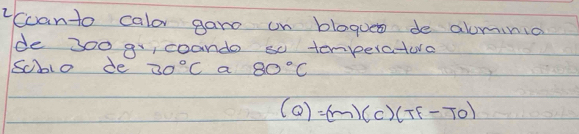 2 Cuanto calor gano un bloque de aluminio
de 300 gr, coando su temperatura
subio de 30°C a 80°C
(Q)=(m)(C)(Tf-To)